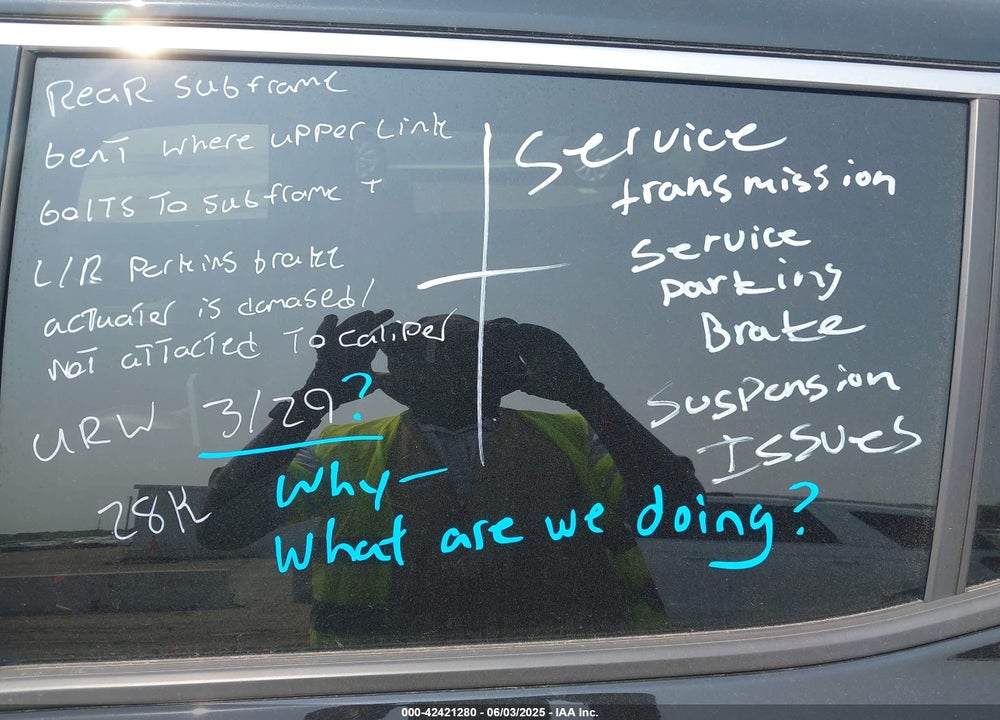 Rear subframe
bent where upper Link
bolts To subframe +
L/R Perkins brake
actuater is damased/
not attacted To Caliper
URW 3/29?
28K
Why-
What are we doing?
Service
transmission
Service
parking
Brake
Suspension
Issues
000-42421280 - 06/03/2025 - IAA Inc.